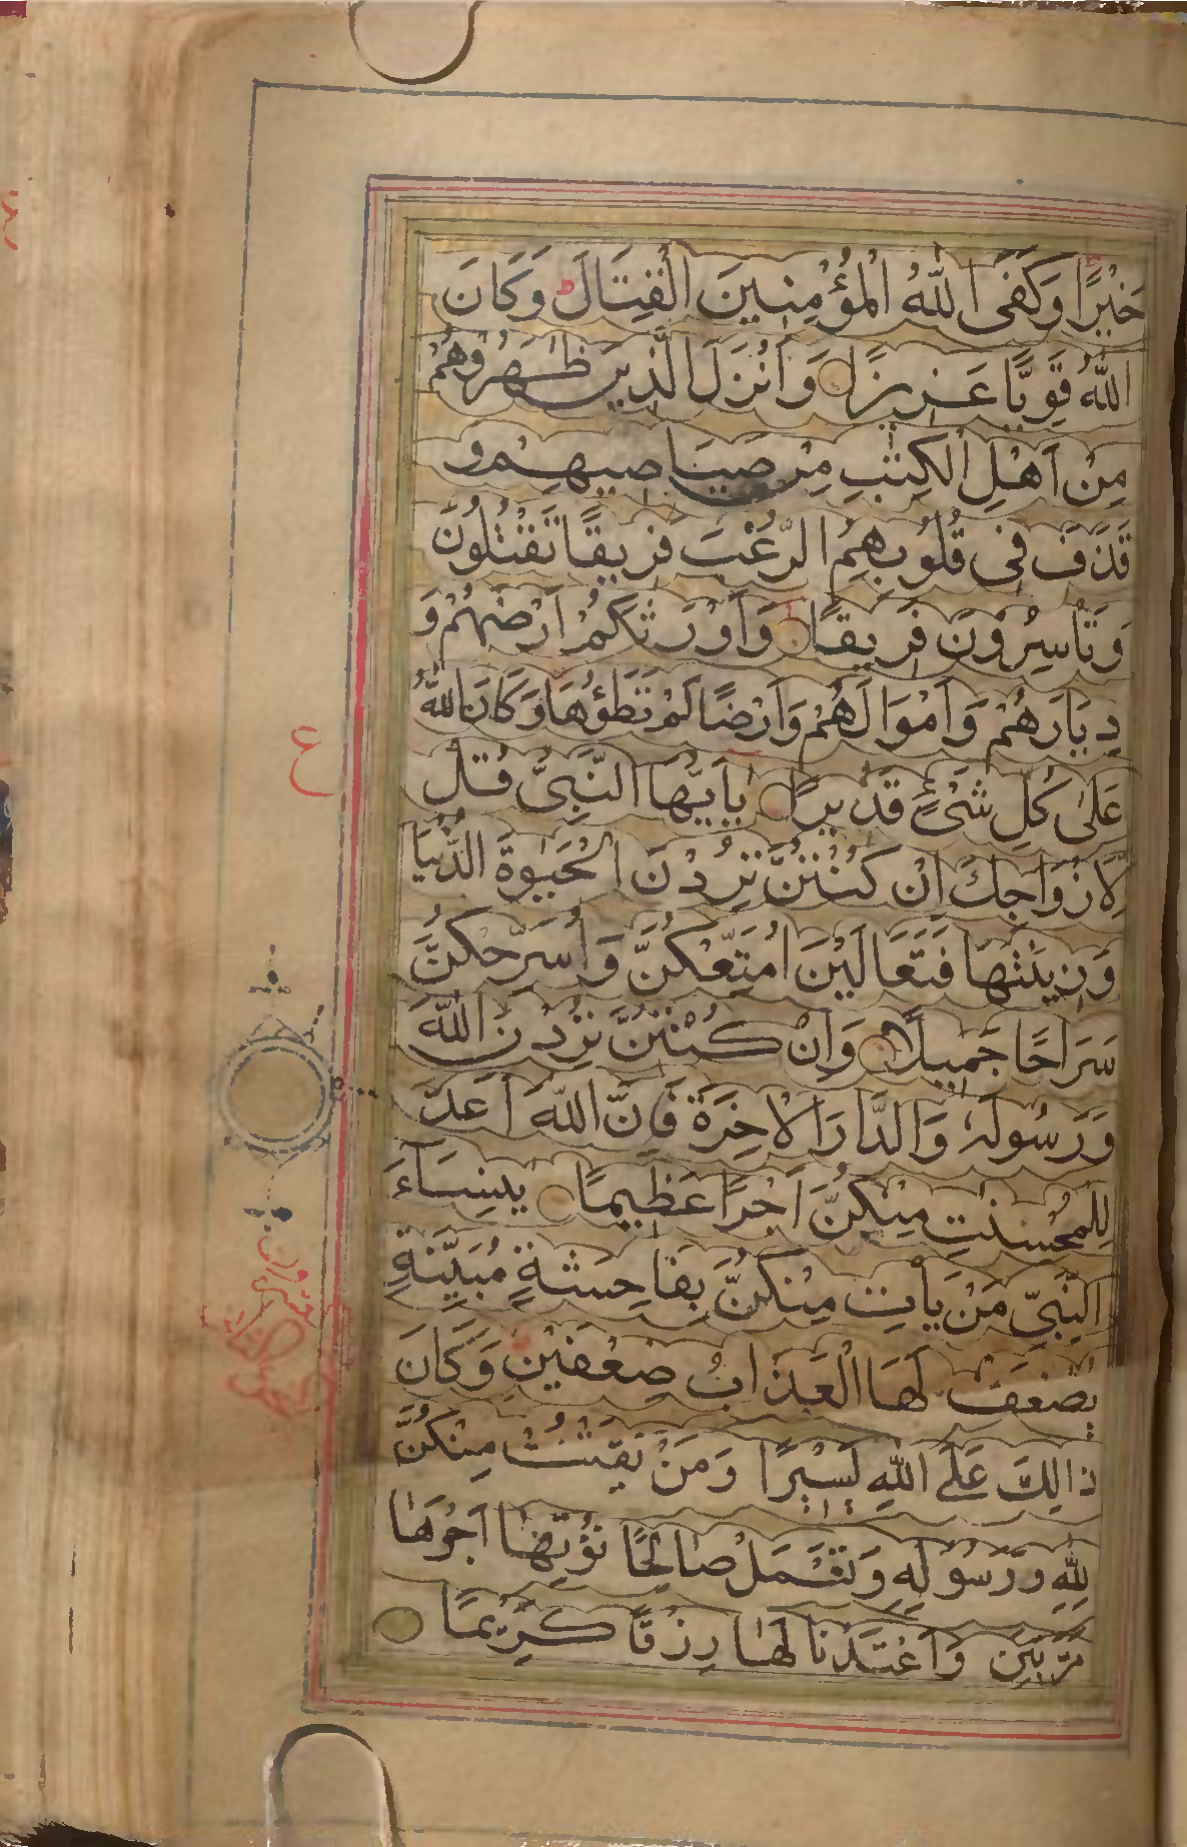 خَيْرًا وَكَفَى اللّٰهُ الْمُؤْمِنِينَ الْقِتَالَ ط وَكَانَ
اللّٰهُ قَوِيًّا عَزِيزًا وَاَنْزَلَ الَّذِينَ ظَاهَرُوهُمْ
مِنْ اَهْلِ الْكِتٰبِ مِنْ صَيَاصِيهِمْ وَ
قَذَفَ فِى قُلُوبِهِمُ الرُّعْبَ فَرِيقًا تَقْتُلُونَ
وَتَأْسِرُوْنَ فَرِيقًا وَاَوْرَثَكُمْ اَرْضَهُمْ وَ
دِيَارَهُمْ وَاَمْوَالَهُمْ وَاَرْضًا لَمْ تَطَؤُهَا وَكَانَ اللّٰهُ
عَلٰى كُلِّ شَىْءٍ قَدِيرًا يٰاَيُّهَا النَّبِىُّ قُلْ
لِاَزْوَاجِكَ اِنْ كُنْتُنَّ تُرِدْنَ الْحَيٰوةَ الدُّنْيَا
وَزِينَتَهَا فَتَعَالَيْنَ اُمَتِّعْكُنَّ وَاُسَرِّحْكُنَّ
سَرَاحًا جَمِيلًا وَاِنْ كُنْتُنَّ تُرِدْنَ اللّٰهَ
وَرَسُولَهُ وَالدَّارَ الْاٰخِرَةَ فَاِنَّ اللّٰهَ اَعَدَّ
لِلْمُحْسِنٰتِ مِنْكُنَّ اَجْرًا عَظِيمًا يٰنِسَاۤءَ
النَّبِىِّ مَنْ يَأْتِ مِنْكُنَّ بِفَاحِشَةٍ مُبَيِّنَةٍ
يُضٰعَفْ لَهَا الْعَذَابُ ضِعْفَيْنِ وَكَانَ
ذَالِكَ عَلَى اللّٰهِ يَسِيْرًا وَمَنْ يَقْنُتْ مِنْكُنَّ
لِلّٰهِ وَرَسُوْلِهِ وَتَعْمَلْ صَالِحًا نُؤْتِهَا اَجْرَهَا
مَرَّتَيْنِ وَاَعْتَدْنَا لَهَا رِزْقًا كَرِيْمًا
ع